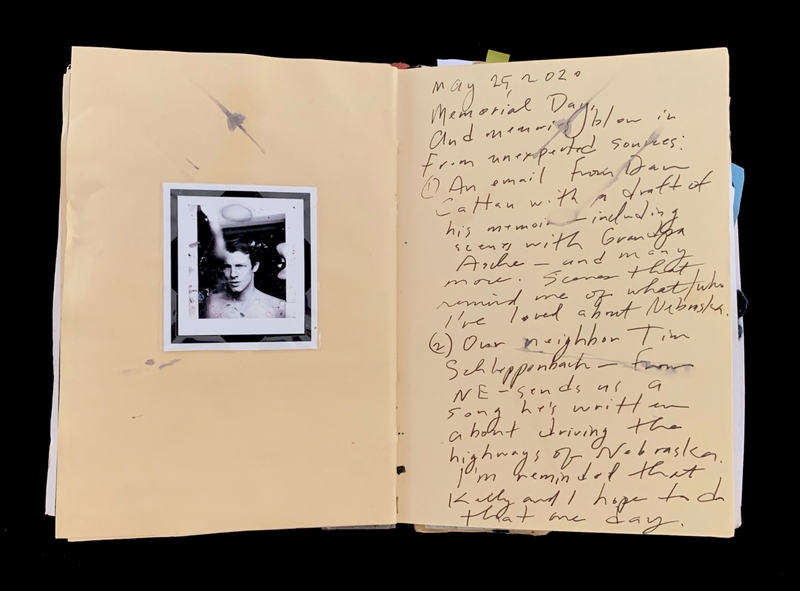 May 25, 2020
Memorial Day,
And memories blow in
from unexpected sources:
① An email from Dan
Cattau with a draft of
his memoir – including
scenes with Grandpa
Asche – and many
more. Scenes that
remind me of what/who
I've loved about Nebraska.
② Our neighbor Tim
Schleppenbach – from
NE – sends us a
song he's written
about driving the
highways of Nebraska.
I'm reminded that
Kelly and I hope to do
that one day.